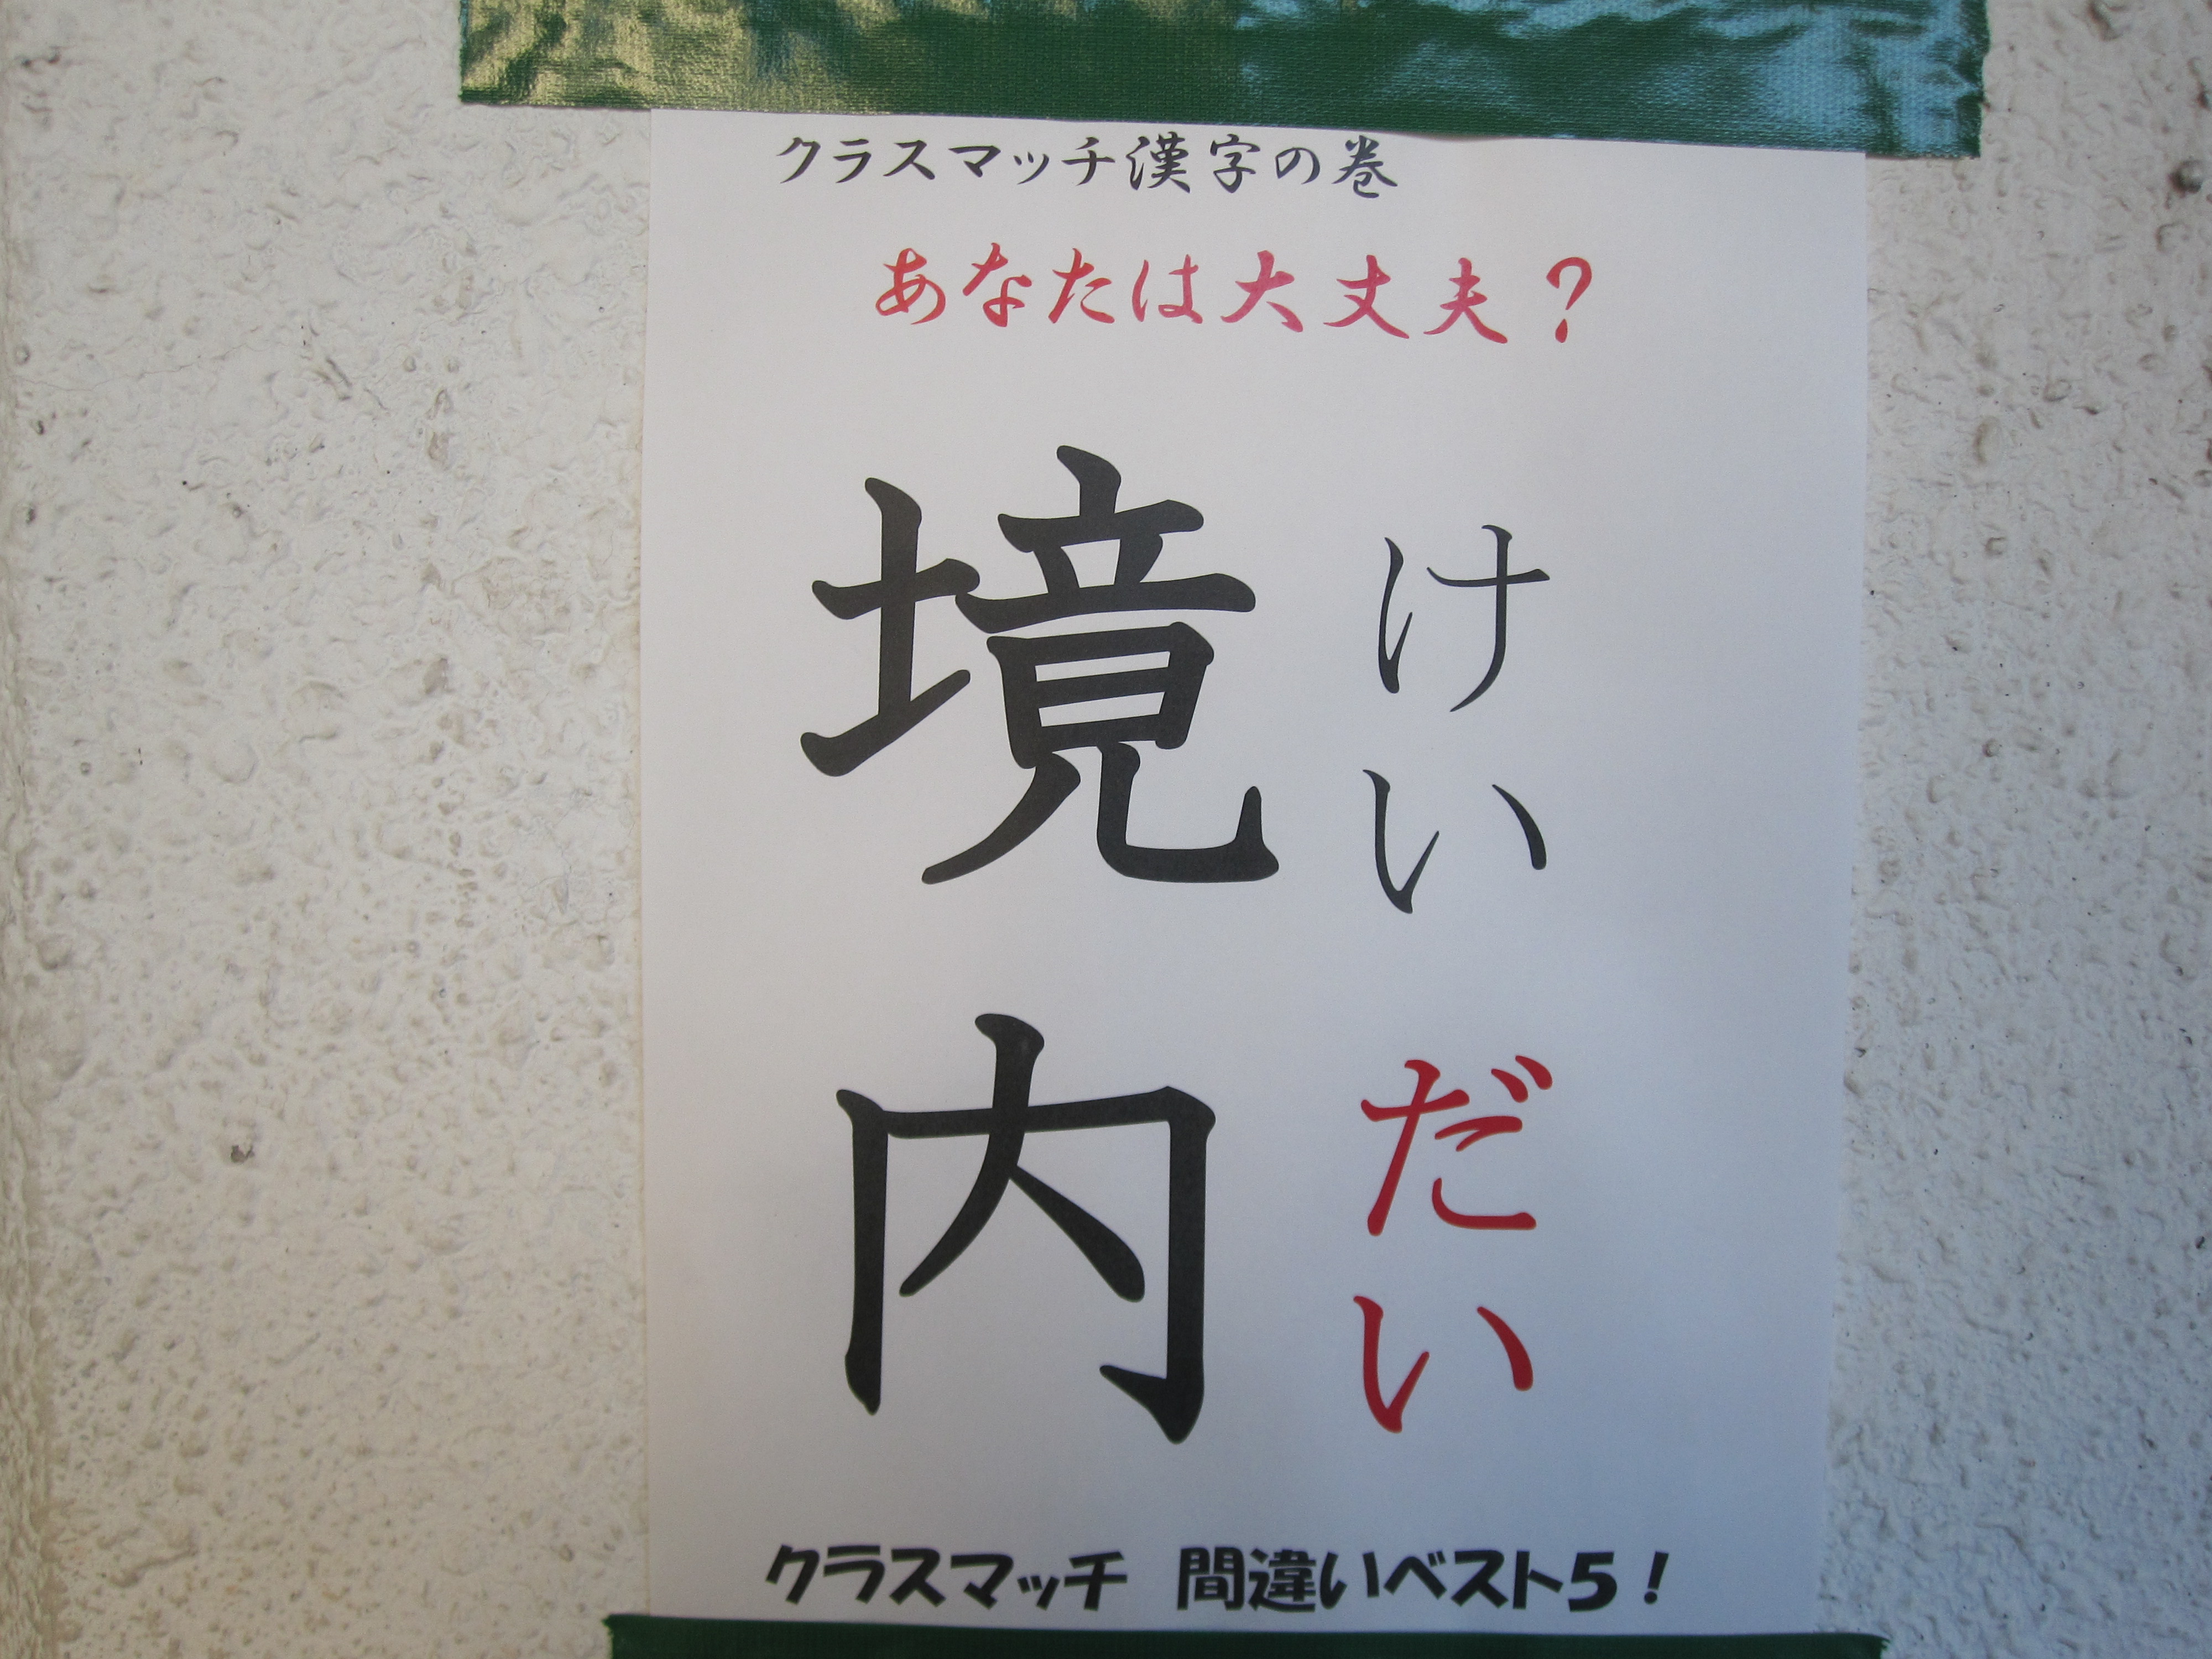 クラスマッチ漢字の巻
あなたは大丈夫？
けいだい
境内
クラスマッチ 間違いベスト5！